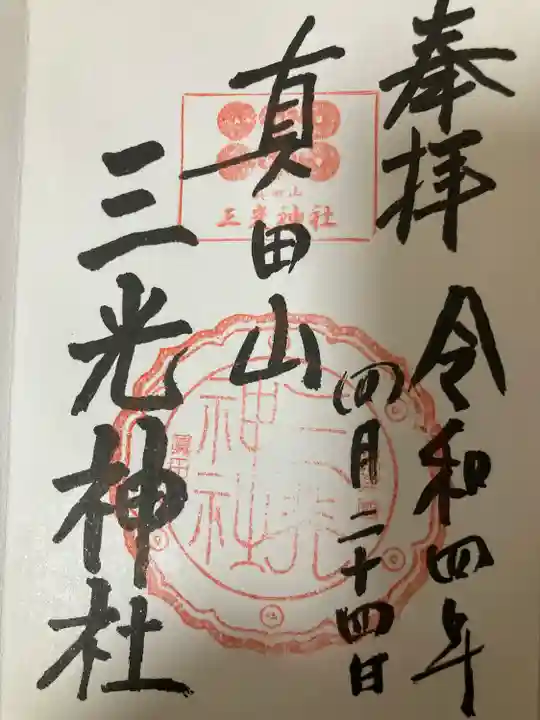 奉拝
令和四年
四月二十四日
真田山
三光神社
真田山
三光神社
三光
神社